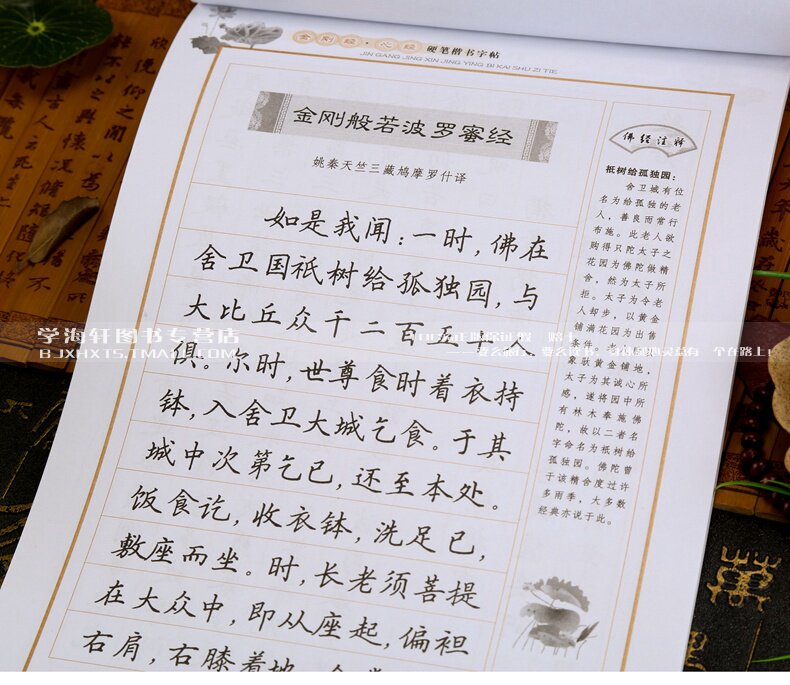 金刚经·心经 硬笔楷书字帖
JIN GANG JING XIN JING YING BI KAI SHU ZI TIE
金刚般若波罗蜜经
姚秦天竺三藏鸠摩罗什译
如是我闻：一时，佛在
舍卫国祇树给孤独园，与
大比丘众千二百五十人
俱。尔时，世尊食时着衣持
钵，入舍卫大城乞食。于其
城中次第乞已，还至本处。
饭食讫，收衣钵，洗足已，
敷座而坐。时，长老须菩提
在大众中，即从座起，偏袒
右肩，右膝着地
佛经注释
祇树给孤独园：
舍卫城有位
名为给孤独的老
人，善良而常行
布施。此老人欲
购得只陀太子之
花园为佛陀做精
舍，然为太子所
拒。太子为令老
人却步，以黄金
铺满花园为出售
条件。
象驮黄金铺地，
太子为其诚心所
感，遂将园中所
有林木奉施佛
陀，故以二者名
字命名为祇树给
孤独园。佛陀曾
于该精舍度过许
多雨季，大多数
经典亦说于此。
学海轩图书专营店
BJXHXTS.TMALL.COM